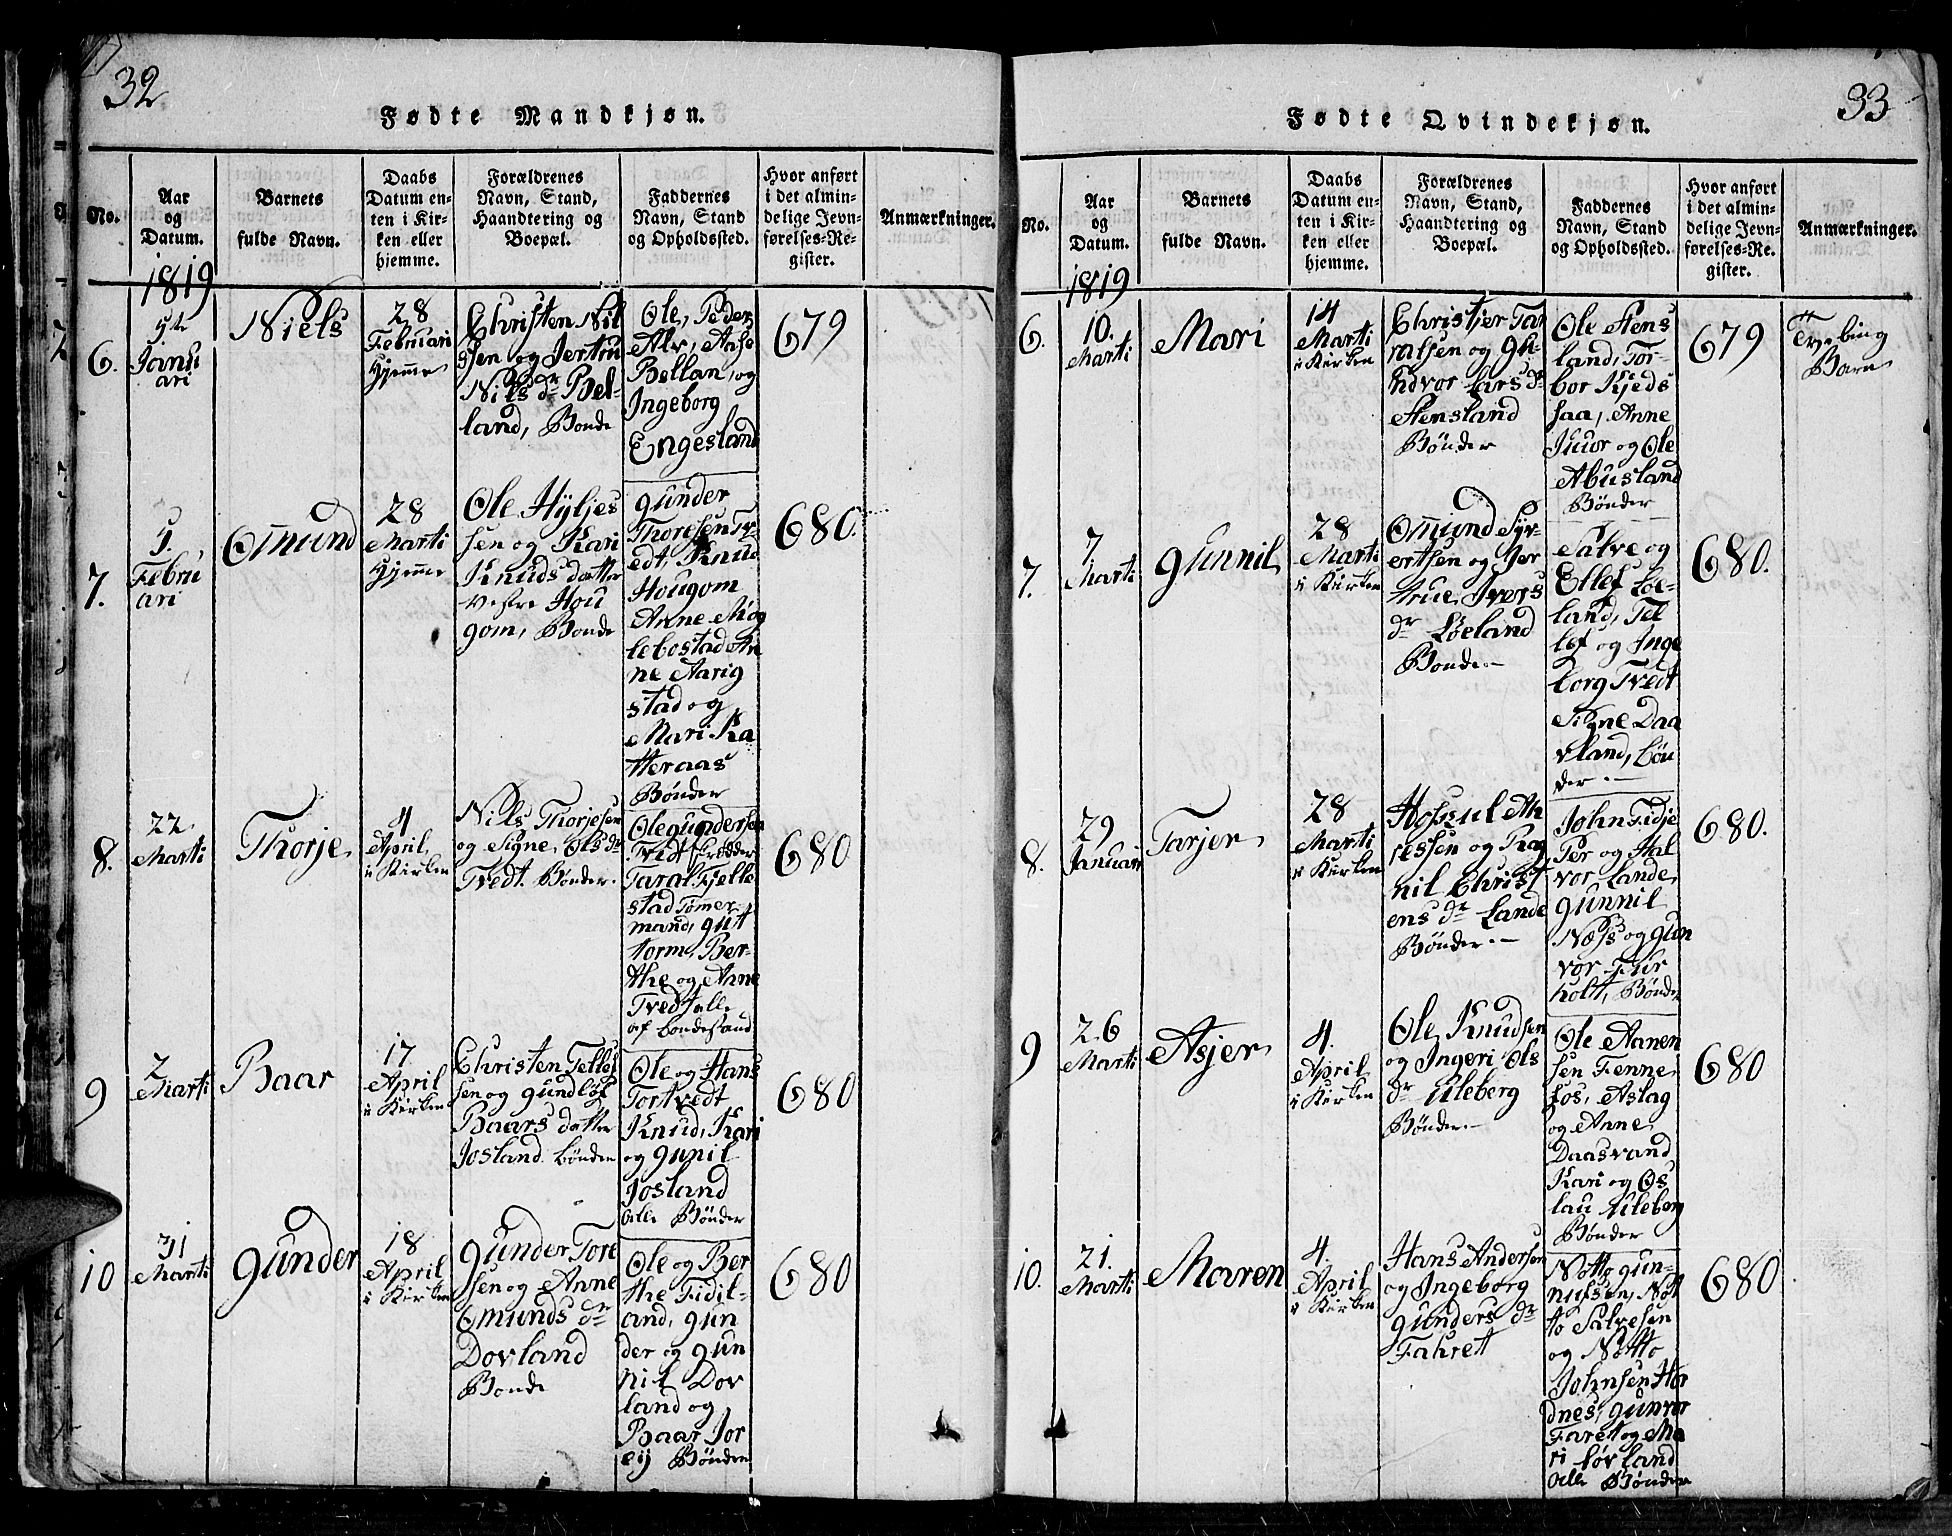 32
Fødte Mandkjøn.
No.
Aar
og
Datum.
Barnets
fulde Navn.
Daabs
Datum en-
ten i Kir-
ken eller
hjemme.
Forældrenes
Navn, Stand,
Haandtering og
Boepæl.
Faddernes
Navn, Stand
og Opholdssted.
Hvor anført
i det almin-
delige Jevn-
førelses-Re-
gister.
Anmærkninger.
1819
6.
5te
Janu
ari
Niels
28
Februari
Hjemme
Christen Nil
ssen og Jertru
Nils dr Bel-
land, Bonde
Ole, Peder
Alv, Aase
Bellan, og
Ingeborg
Engesland
679
7.
5.
Febru
ari
Omund
28
Marti
Hjemme
Ole Hyljes
sen og Kari
Knuds datter
Vestre Hou
gom, Bonde
gunder
Thoresen Tv-
edt, Knud
Hougom
Anne Mog
lebostad An
ne Aarig
stad og
Mari Ka
tteraas
Bønder
680.
8.
22
Marti
Thorje
4
April
i Kirken
Nils Thorjesen
og Signe Ols dr
Tvedt. Bønder.
Ole gundersen
Tvedt
Taral Fjelle
stad Tømer
mand, gutt
torm, Ber-
the og Anne
Tvedt alle
af bondestand
680
9
2
Marti
Baar
17
April
i Kirken
Christen Tellef
sen og gundløf
Baars datter
Josland bønder
Ole og Hans
Tortvedt
Knud, Kari
og gunil
Josland
alle Bønder
680
10
31
Marti
gunder
18
April
i Kirken
gunder Tore
sen og Anne
Omunds dr
Dovland
Bonde
Ole og Ber
the Fidil-
and, gun
der og gun
nil Dov
land og
Baar Jor
eij Bønder
680
33
Fødte Qvindekjøn.
No.
Aar
og
Datum.
Barnets
fulde Navn.
Daabs
Datum en-
ten i Kir-
ken eller
hjemme.
Forældrenes
Navn, Stand,
Haandtering og
Boepæl.
Faddernes
Navn, Stand
og Opholdssted.
Hvor anført
i det almin-
delige Jevn-
førelses-Re-
gister.
Anmærkninger.
1819
6.
10.
Marti
Mari
14
Marti
i Kirken
Christjer Tar
ralsen og gu-
ndvor Lars dr
Stensland
Bønder
Ole Stens
land, Tor-
bor Kjeds
saa, Anne
Juvr og Ole
Abusland
Bønder
679
Tvebing
Barn
7.
7
Marti
gunnil
28
Marti
i Kirken
Omund Syv-
ertsen og Jer
true Ivers
dr Løeland
Bonde.
Salve og
Ellef Løe-
land, Tel
lef og Inge
borg Tvedt
Signe Daa
vland, Bøn
der.
680.
8.
29
Januari
Tarjer
28
Marti
i Kirken
Hoskul An
ressen og Rag
nil Christ
ens dr Lande
Bønder.
John Fidje
Per og Hal
vor Lande
gunnil
Næss og gun
vor Fur
holt, Bønder
680.
9
26
Marti
Asjer
4.
April
i Kirken
Ole Knudsen
og Ingeri Ols
dr Uleberg
Bønder.
Ole Aanen
sen Fenne
fos, Aslag
og Anne
Daasvand
Kari og Os
lau Uleberg
Bønder
680
10.
21.
Marti
Maren
4.
April
i Kirken
Hans Andersen
og Ingeborg
gunders dr
Fahret
Notto gun-
nufsen, Not
to Salvesen
og Notto
Johnsen Hor
dnes, gunvor
Faret og Ma
ri Løvland
alle Bønder
680